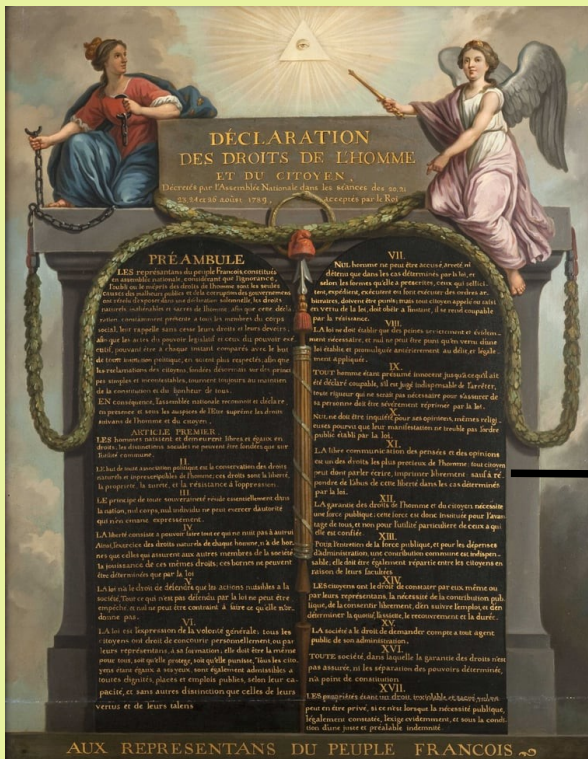 DÉCLARATION
DES DROITS DE L'HOMME
ET DU CITOYEN,
Décretés par l'Assemblée Nationale dans les séances des 20, 21
23, 24 et 26 août 1789, acceptés par le Roi
PRÉAMBULE
LES représentans du peuple François, constitués
en assemblée nationale, considérant que l'ignorance,
l'oubli ou le mépris des droits de l'homme sont les seules
causes des malheurs publics et de la corruption des gouvernemens
ont résolu d'exposer dans une déclaration solemnelle, les droits
naturels, inaliénables et sacrés de l'homme; afin que cette décla
ration, constamment présente à tous les membres du corps
social, leur rappelle sans cesse leurs droits et leurs devoirs;
afin que les actes du pouvoir législatif et ceux du pouvoir exé
cutif, pouvant être à chaque instant comparés avec le but
de toute institution politique, en soient plus respectés; afin que
les réclamations des citoyens, fondées désormais sur des principes
simples et incontestables, tournent toujours au maintien
de la constitution et du bonheur de tous.
EN conséquence, l'assemblée nationale reconnoit et déclare,
en présence et sous les auspices de l'Etre suprême les droits
suivans de l'homme et du citoyen.
ARTICLE PREMIER.
LES hommes naissent et demeurent libres et égaux en
droits, les distinctions sociales ne peuvent être fondées que sur
l'utilité commune.
II.
LE but de toute association politique est la conservation des droits
naturels et imprescriptibles de l'homme; ces droits sont la liberté,
la propriété, la sureté, et la résistance à l'oppression.
III.
LE principe de toute souveraineté réside essentiellement dans
la nation, nul corps, nul individu ne peut exercer d'autorité
qui n'en émane expressément.
IV.
LA liberté consiste à pouvoir faire tout ce qui ne nuit pas à autrui
Ainsi, l'exercice des droits naturels de chaque homme, n'a de bor
nes que celles qui assurent aux autres membres de la société
la jouissance de ces mêmes droits; ces bornes ne peuvent
être déterminées que par la loi
V.
LA loi n'a le droit de défendre que les actions nuisibles à la
société. Tout ce qui n'est pas défendu par la loi ne peut être
empêché, et nul ne peut être contraint à faire ce qu'elle n'or-
donne pas.
VI.
LA loi est l'expression de la volonté générale; tous les
citoyens ont droit de concourir personnellement, ou par
leurs représentans, à sa formation; elle doit être la même
pour tous, soit qu'elle protege, soit qu'elle punisse. Tous les cito
yens étant égaux à ses yeux, sont également admissibles à
toutes dignités, places et emplois publics, selon leur ca-
pacité, et sans autres distinction que celles de leurs
vertus et de leurs talens
VII.
NUL homme ne peut être accusé, arreté, ni
détenu que dans les cas déterminés par la loi, et
selon les formes qu'elle a prescrites, ceux qui sollici-
tent, expédient, exécutent ou font exécuter des ordres ar-
bitraires, doivent être punis; mais tout citoyen appelé ou saisi
en vertu de la loi, doit obéir à l'instant, il se rend coupable
par la résistance.
VIII.
LA loi ne doit établir que des peines strictement et évidem-
ment nécessaires, et nul ne peut être puni qu'en vertu d'une
loi établie et promulguée antérieurement au délit, et légale-
ment appliquée.
IX.
TOUT homme étant présumé innocent jusqu'à ce qu'il ait
été déclaré coupable, s'il est jugé indispensable de l'arrêter,
toute rigueur qui ne serait pas nécessaire pour s'assurer de
sa personne doit être sévèrement réprimée par la loi.
X.
NUL ne doit être inquiété pour ses opinions, mêmes religi
euses pourvu que leur manifestation ne trouble pas l'ordre
public établi par la loi.
XI.
LA libre communication des pensées et des opinions
est un des droits les plus précieux de l'homme; tout citoyen
peut donc parler, écrire, imprimer librement sauf à ré-
pondre de l'abus de cette liberté dans les cas déterminés
par la loi.
XII.
LA garantie des droits de l'homme et du citoyen nécessite
une force publique; cette force est donc instituée pour l'avan
tage de tous, et non pour l'utilité particulière de ceux à qui
elle est confiée.
XIII.
POUR l'entretien de la force publique, et pour les dépenses
d'administration, une contribution commune est indispen-
sable; elle doit être également répartie entre les citoyens en
raison de leurs facultées
XIV.
LES citoyens ont le droit de constater par eux même ou
par leurs représentans, la nécessité de la contribution pub
lique, de la consentir librement, d'en suivre l'emploi, et d'en
déterminer la quotité, l'assiette, le recouvrement et la durée.
XV.
LA société a le droit de demander compte à tout agent
public de son administration.
XVI.
TOUTE société, dans laquelle la garantie des droits n'est
pas assurée, ni la séparation des pouvoirs déterminée,
n'a point de constitution
XVII.
LES propriétés étant un droit inviolable et sacré, nul ne
peut en être privé, si ce n'est lorsque la nécessité publique,
légalement constatée, l'exige évidemment, et sous la condi-
tion d'une juste et préalable indemnité
AUX REPRESENTANS DU PEUPLE FRANCOIS